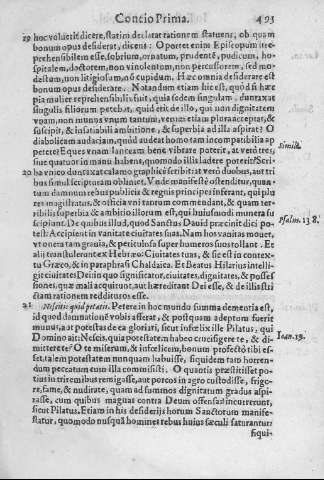 Concio Prima. 493
19 hoc voluerit dicere, statim declarat rationem statuens, ob quam
bonum opus desiderat, dicens: Oportet enim Episcopum irre-
prehensibilem esse, sobrium, ornatum, prudentẽ, pudicum, ho-
spitalem, doctorem, non vinolentum, non percussorem, sed mo-
destum, non litigiosum, nõ cupidum. Hæc omnia desiderare est
bonum opus desiderare. Notandum etiam hic est, quòd si hæc
pia mulier reprehensibilis fuit, quia sedem singulam duntaxat
singulis filiorum petebat, quid erit de illo, qui non dignitatem
vnam, non munus vnum tantùm, verùm etiam plura acceptat, &
suscipit, & insatiabili ambitione, & superbia ad illa aspirat? O
diabolicam audaciam, quòd audeat homo tam incompatibilia ap
petere? Eques vnam lanceam benè vibrare poterit, at verò tres,
siue quatuor in manu habens, quomodo illis lædere poterit? Scri-
Simile.
20 ba vnico duntaxat calamo graphicè scribit: at verò duobus, aut tri
bus simul scriptitans oblinet. Vnde manifestè ostenditur, quan-
tum damnum rebus publicis & regnis principes inferant, qui plu
res magistratus, & officia vni tantum commendant, & quam ter-
ribilis superbia & ambitio illorum est, qui huiusmodi munera su
scipiunt. De quibus illud, quod Sanctus Dauid præcinit dici po-
Psalm. 138.
test: Accipient in vanitate ciuitates suas. Nam hos vanitas mouet,
vt onera tam grauia, & periculosa super humeros suos tollant. Et
alij transtulerunt ex Hebræo: Ciuitates tuas, & sic est in contex-
tu Græco, & in paraphrasi Chaldaica. Et Beatus Hilarius intelli-
git ciuitates Dei: in quo significatur, ciuitates, dignitates, & posses
siones, quæ mali acquirunt, aut hæreditant Dei esse, & de illis stri
ctam rationem reddituros esse.
21 Nescitis quid petatis. Petere in hoc mundo summa dementia est,
id quod damnationẽ vobis afferat, & postquam adeptem fuerit
munus, aut potestas de ea gloriari, sicut infelix ille Pilatus, qui
Domino ait: Nescis, quia potestatem habeo crucifigere te, & di-
Ioan. 19.
mittere te? O te miserum, & infelicem, bonum profectò tibi es-
set, talem potestatem nunquam habuisse, siquidem tam horren-
dum peccatum cum illa commisisti. O quantis præstitisset po-
tius in triremibus remigasse, aut porcos in agro custodisse, frigo-
re, fame, & nuditate, quam ad summos dignitatum gradus aspi-
rasse, cum quibus magnas contra Deum offensas incurrerunt,
sicut Pilatus. Etiam in his desiderijs horum Sanctorum manife-
statur, quomodo nusquã homines rebus huius sæculi saturantur:
siqui-